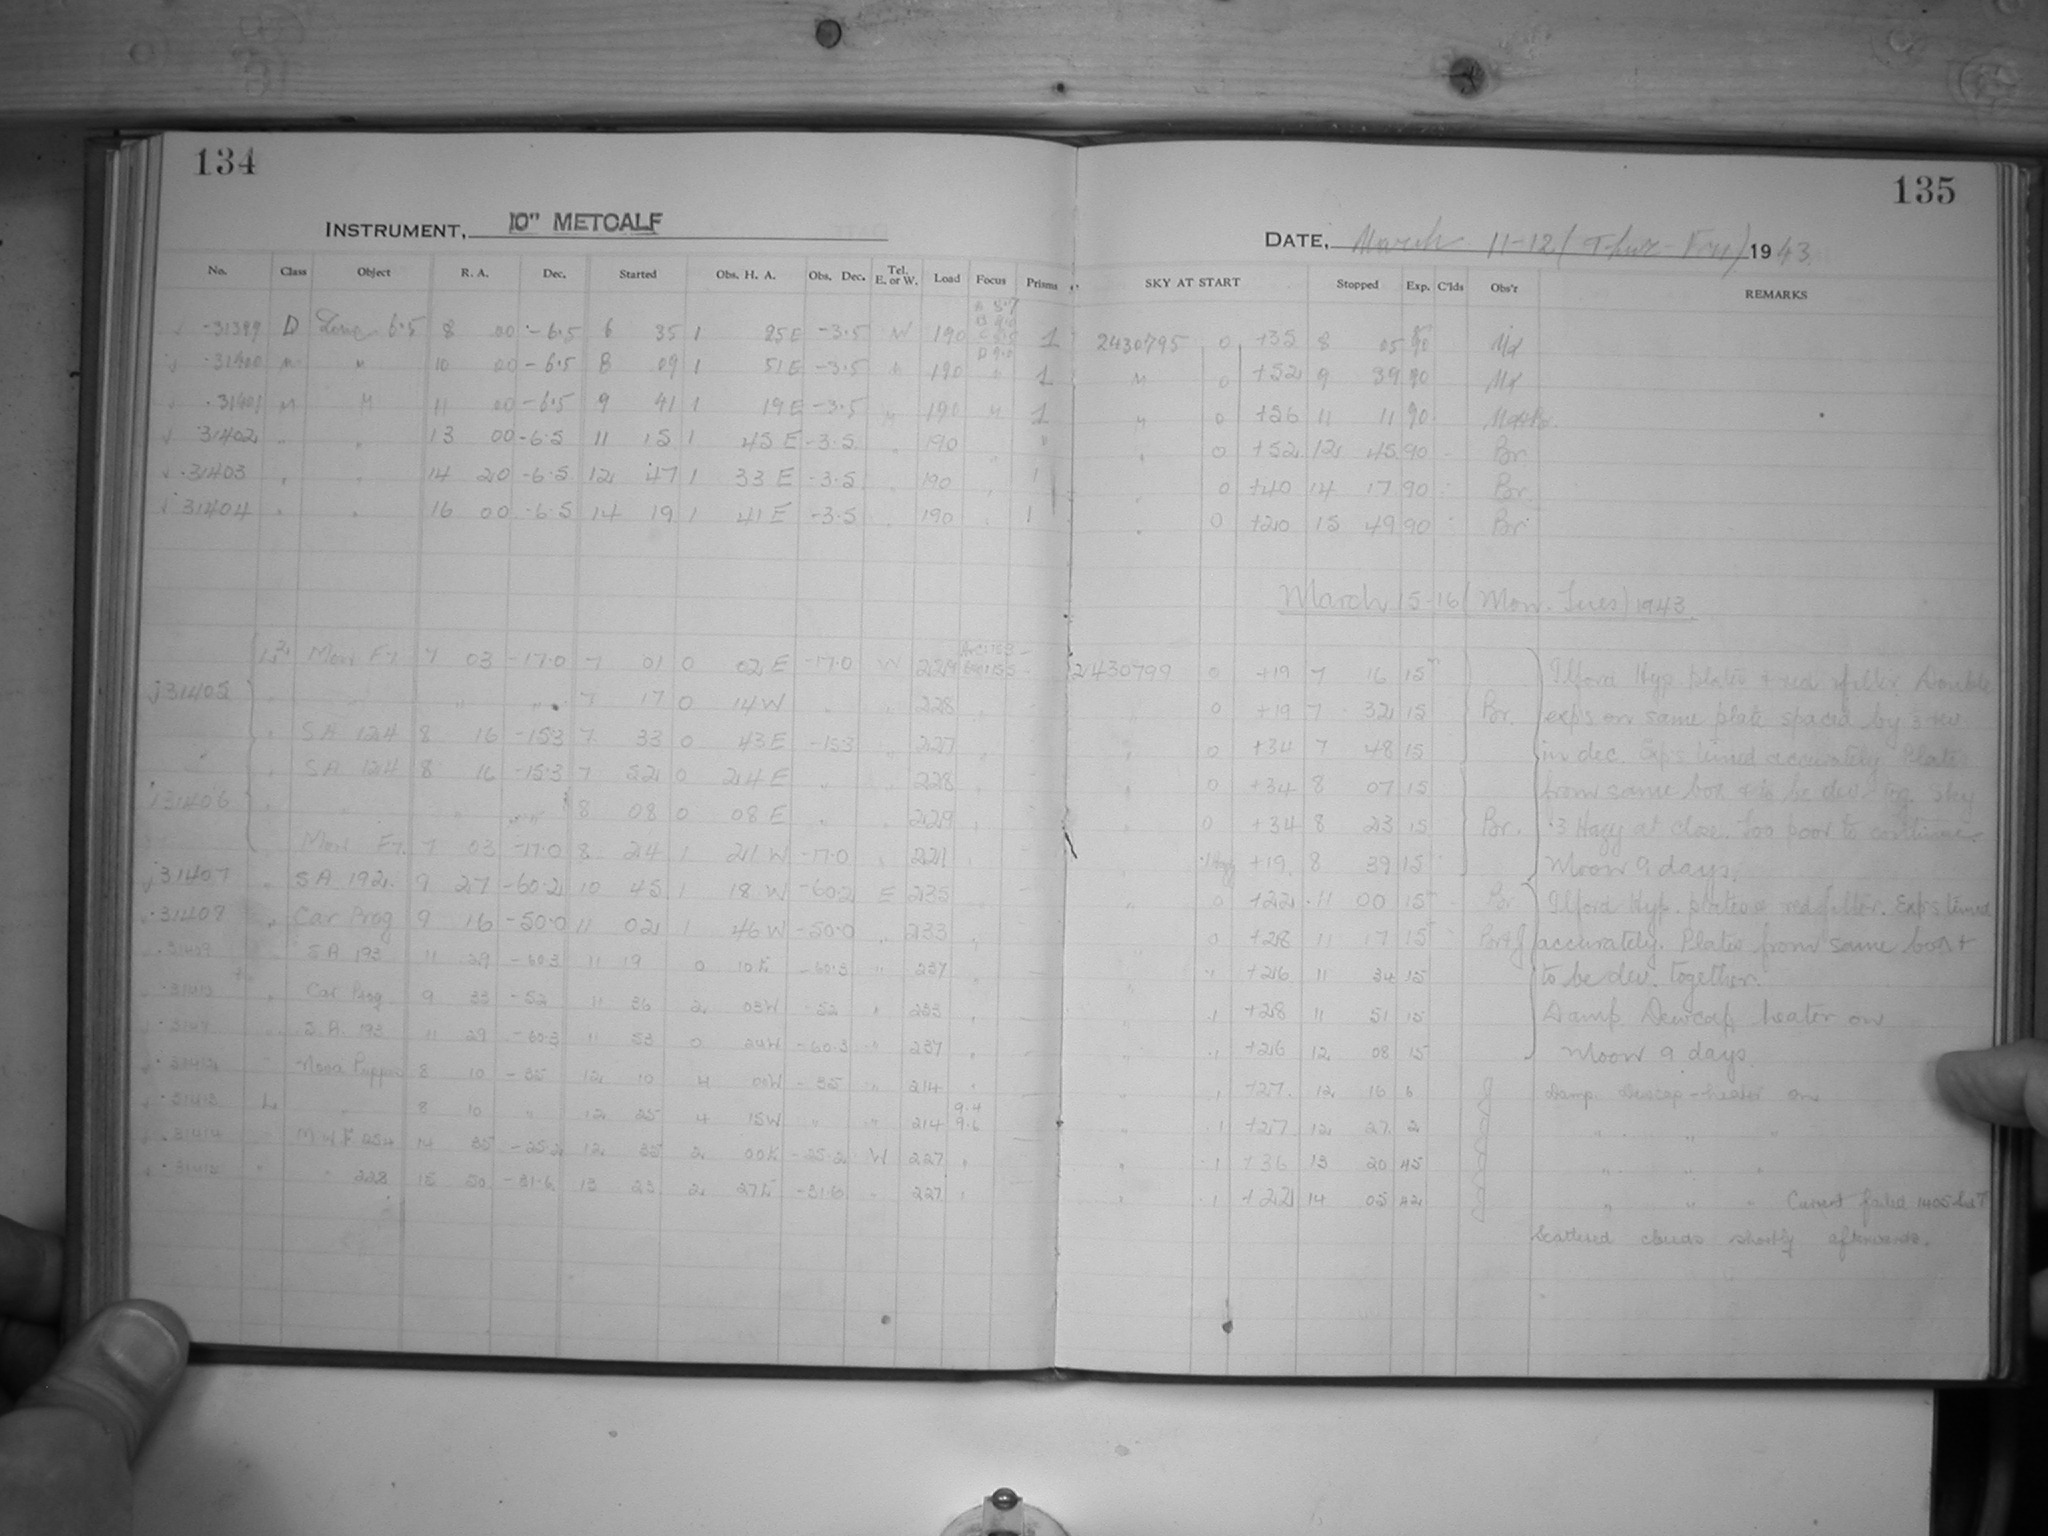 134
135
INSTRUMENT, 10" METCALF
DATE, March 11-12 (Thur-Fri) 1943
No. Class Object R. A. Dec. Started Obs. H. A. Obs. Dec. Tel. E. or W. Load Focus Prisms SKY AT START Stopped Exp. C'lds Obs'r REMARKS
31399 D Zone 6.5 8 00 -6.5 6 35 1 25E -3.5 W 190 1 2430795 0 +35 8 05 90
31400 " " 10 00 -6.5 8 09 1 51E -3.5 " 190 " 1 " 0 +52 9 39 90
31401 " " 11 00 -6.5 9 41 1 19E -3.5 " 190 " 1 " 0 +56 11 11 90
31402 " " 13 00 -6.5 11 15 1 45E -3.5 " 190 " " " 0 +52 12 45 90 Br.
31403 " " 14 20 -6.5 12 47 1 33E -3.5 " 190 " 1 " 0 +40 14 17 90 Br.
31404 " " 16 00 -6.5 14 19 1 41E -3.5 " 190 " 1 " 0 +20 15 49 90 Br.
March 15-16 (Mon. Tues) 1943
Mon Fr. 7 03 -17.0 7 01 0 02E -17.0 W 229 2430799 0 +19 7 16 15 Ilford Hyp plates + red filter. Double
31405 " " " 7 17 0 14W " " 228 " 0 +19 7 32 15 Br. exps on same plate spaced by
SA 124 8 16 -15.3 7 33 0 43E -15.3 " 227 " 0 +34 7 48 15 in dec. Exps timed accurately. Plates
SA 124 8 16 -15.3 7 52 0 24E " " 228 " 0 +34 8 07 15 from same box & to be dev. tog. Sky
31406 " " " 8 08 0 08E " " 229 " 0 +34 8 23 15 Br. .3 Hazy at close. Too poor to continue.
Mon Fr. 7 03 -17.0 8 24 1 21W -17.0 " 221 " +19 8 39 15 Moon 9 days.
31407 " SA 192 9 27 -60.2 10 45 1 18W -60.2 E 235 " 0 +22 11 00 15 Br Ilford Hyp. plates + red filter. Exps timed
31408 " Car Prog 9 16 -50.0 11 02 1 46W -50.0 " 233 " 0 +28 11 17 15 accurately. Plates from same box +
31409 SA 193 11 29 -60.3 11 19 0 10E -60.3 " 237 " .1 +26 11 34 15 to be dev. together.
Car Prog 9 33 -52 11 36 2 03W -52 " 233 " .1 +28 11 51 15 Damp Dewcap heater on
S.A. 193 11 29 -60.3 11 53 0 24W -60.3 " 237 " .1 +26 12 08 15 Moon 9 days
Nova Puppis 8 10 -35 12 10 4 00W -35 " 214 " .1 +27 12 16 6 Damp Dewcap-heater on
31413 L " 8 10 " 12 25 4 15W " " 214 9.4 9.6 " .1 +27 12 27 2 " " "
31414 MWF 254 14 35 -25.2 12 35 2 00E -25.2 W 227 " " .1 +36 13 20 45 " " "
" 228 15 50 -31.6 13 23 2 27E -31.6 " 227 " " .1 +22 14 05 42 " " " Current failed
Scattered clouds shortly afterwards.